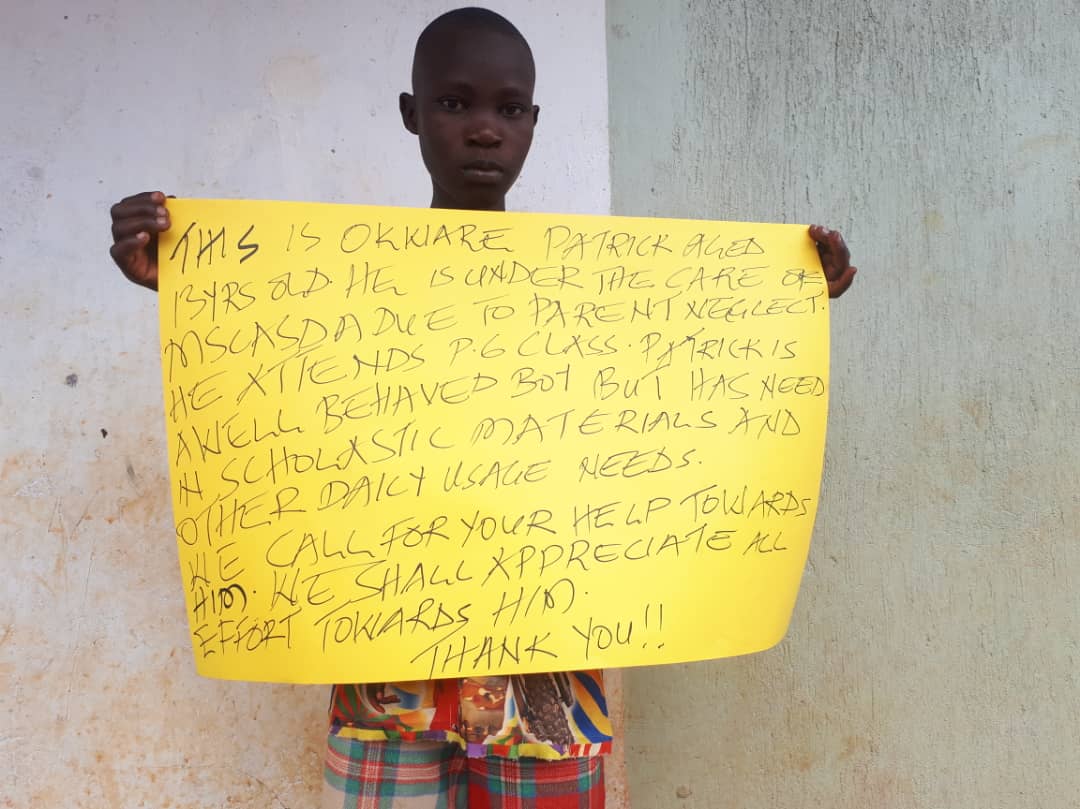 THIS IS OKWARE PATRICK AGED
13YRS OLD. HE IS UNDER THE CARE OF
MSCASDA DUE TO PARENT NEGLECT.
HE ATTENDS P.6 CLASS. PATRICK IS
A WELL BEHAVED BOY BUT HAS NEED
IN SCHOLASTIC MATERIALS AND
OTHER DAILY USAGE NEEDS.
WE CALL FOR YOUR HELP TOWARDS
HIM. WE SHALL APPRECIATE ALL
EFFORT TOWARDS HIM.
THANK YOU!!